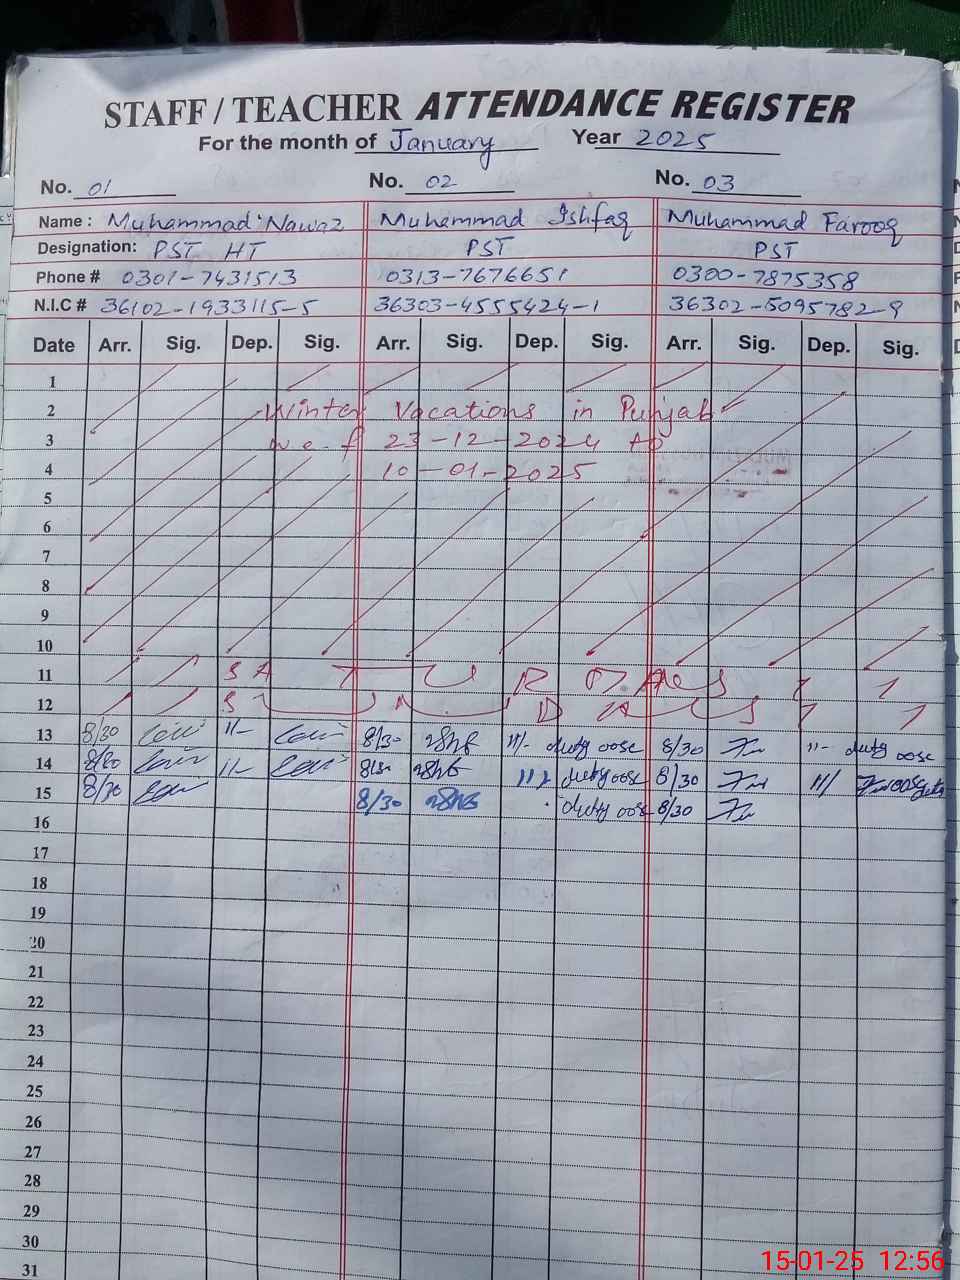 STAFF / TEACHER ATTENDANCE REGISTER
For the month of January Year 2025
No. 01 No. 02 No. 03
Name : Muhammad Nawaz Muhammad Ishfaq Muhammad Farooq
Designation: PST HT PST PST
Phone # 0301-7431513 0313-7676651 0300-7875358
N.I.C # 36102-1933115-5 36303-4555424-1 36302-5095782-9
Date Arr. Sig. Dep. Sig. Arr. Sig. Dep. Sig. Arr. Sig. Dep. Sig.
1
2 Winter Vacations in Punjab
3 w.e.f 23-12-2024 to
4 10-01-2025
5
6
7
8
9
10
11 SATURDAY
12 SUNDAY
13 8/30 11/- 8/30 11/- duty oosc 8/30 11- duty oosc
14 8/30 11- 8/30 11/ duty oosc 8/30 11/
15 8/30 8/30 duty oosc 8/30
16
17
18
19
20
21
22
23
24
25
26
27
28
29
30
31
15-01-25 12:56